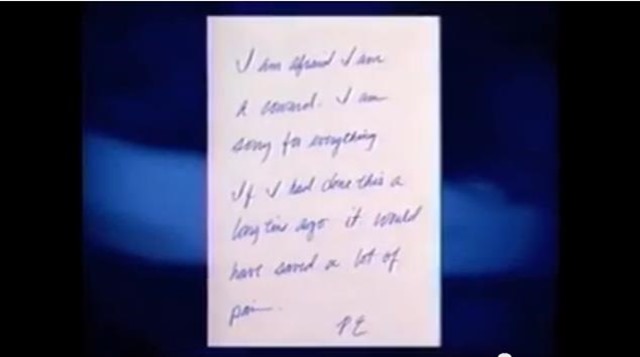 I am afraid I am
a coward. I am
sorry for everything
If I had done this a
long time ago it would
have saved a lot of
pain.
P.E.